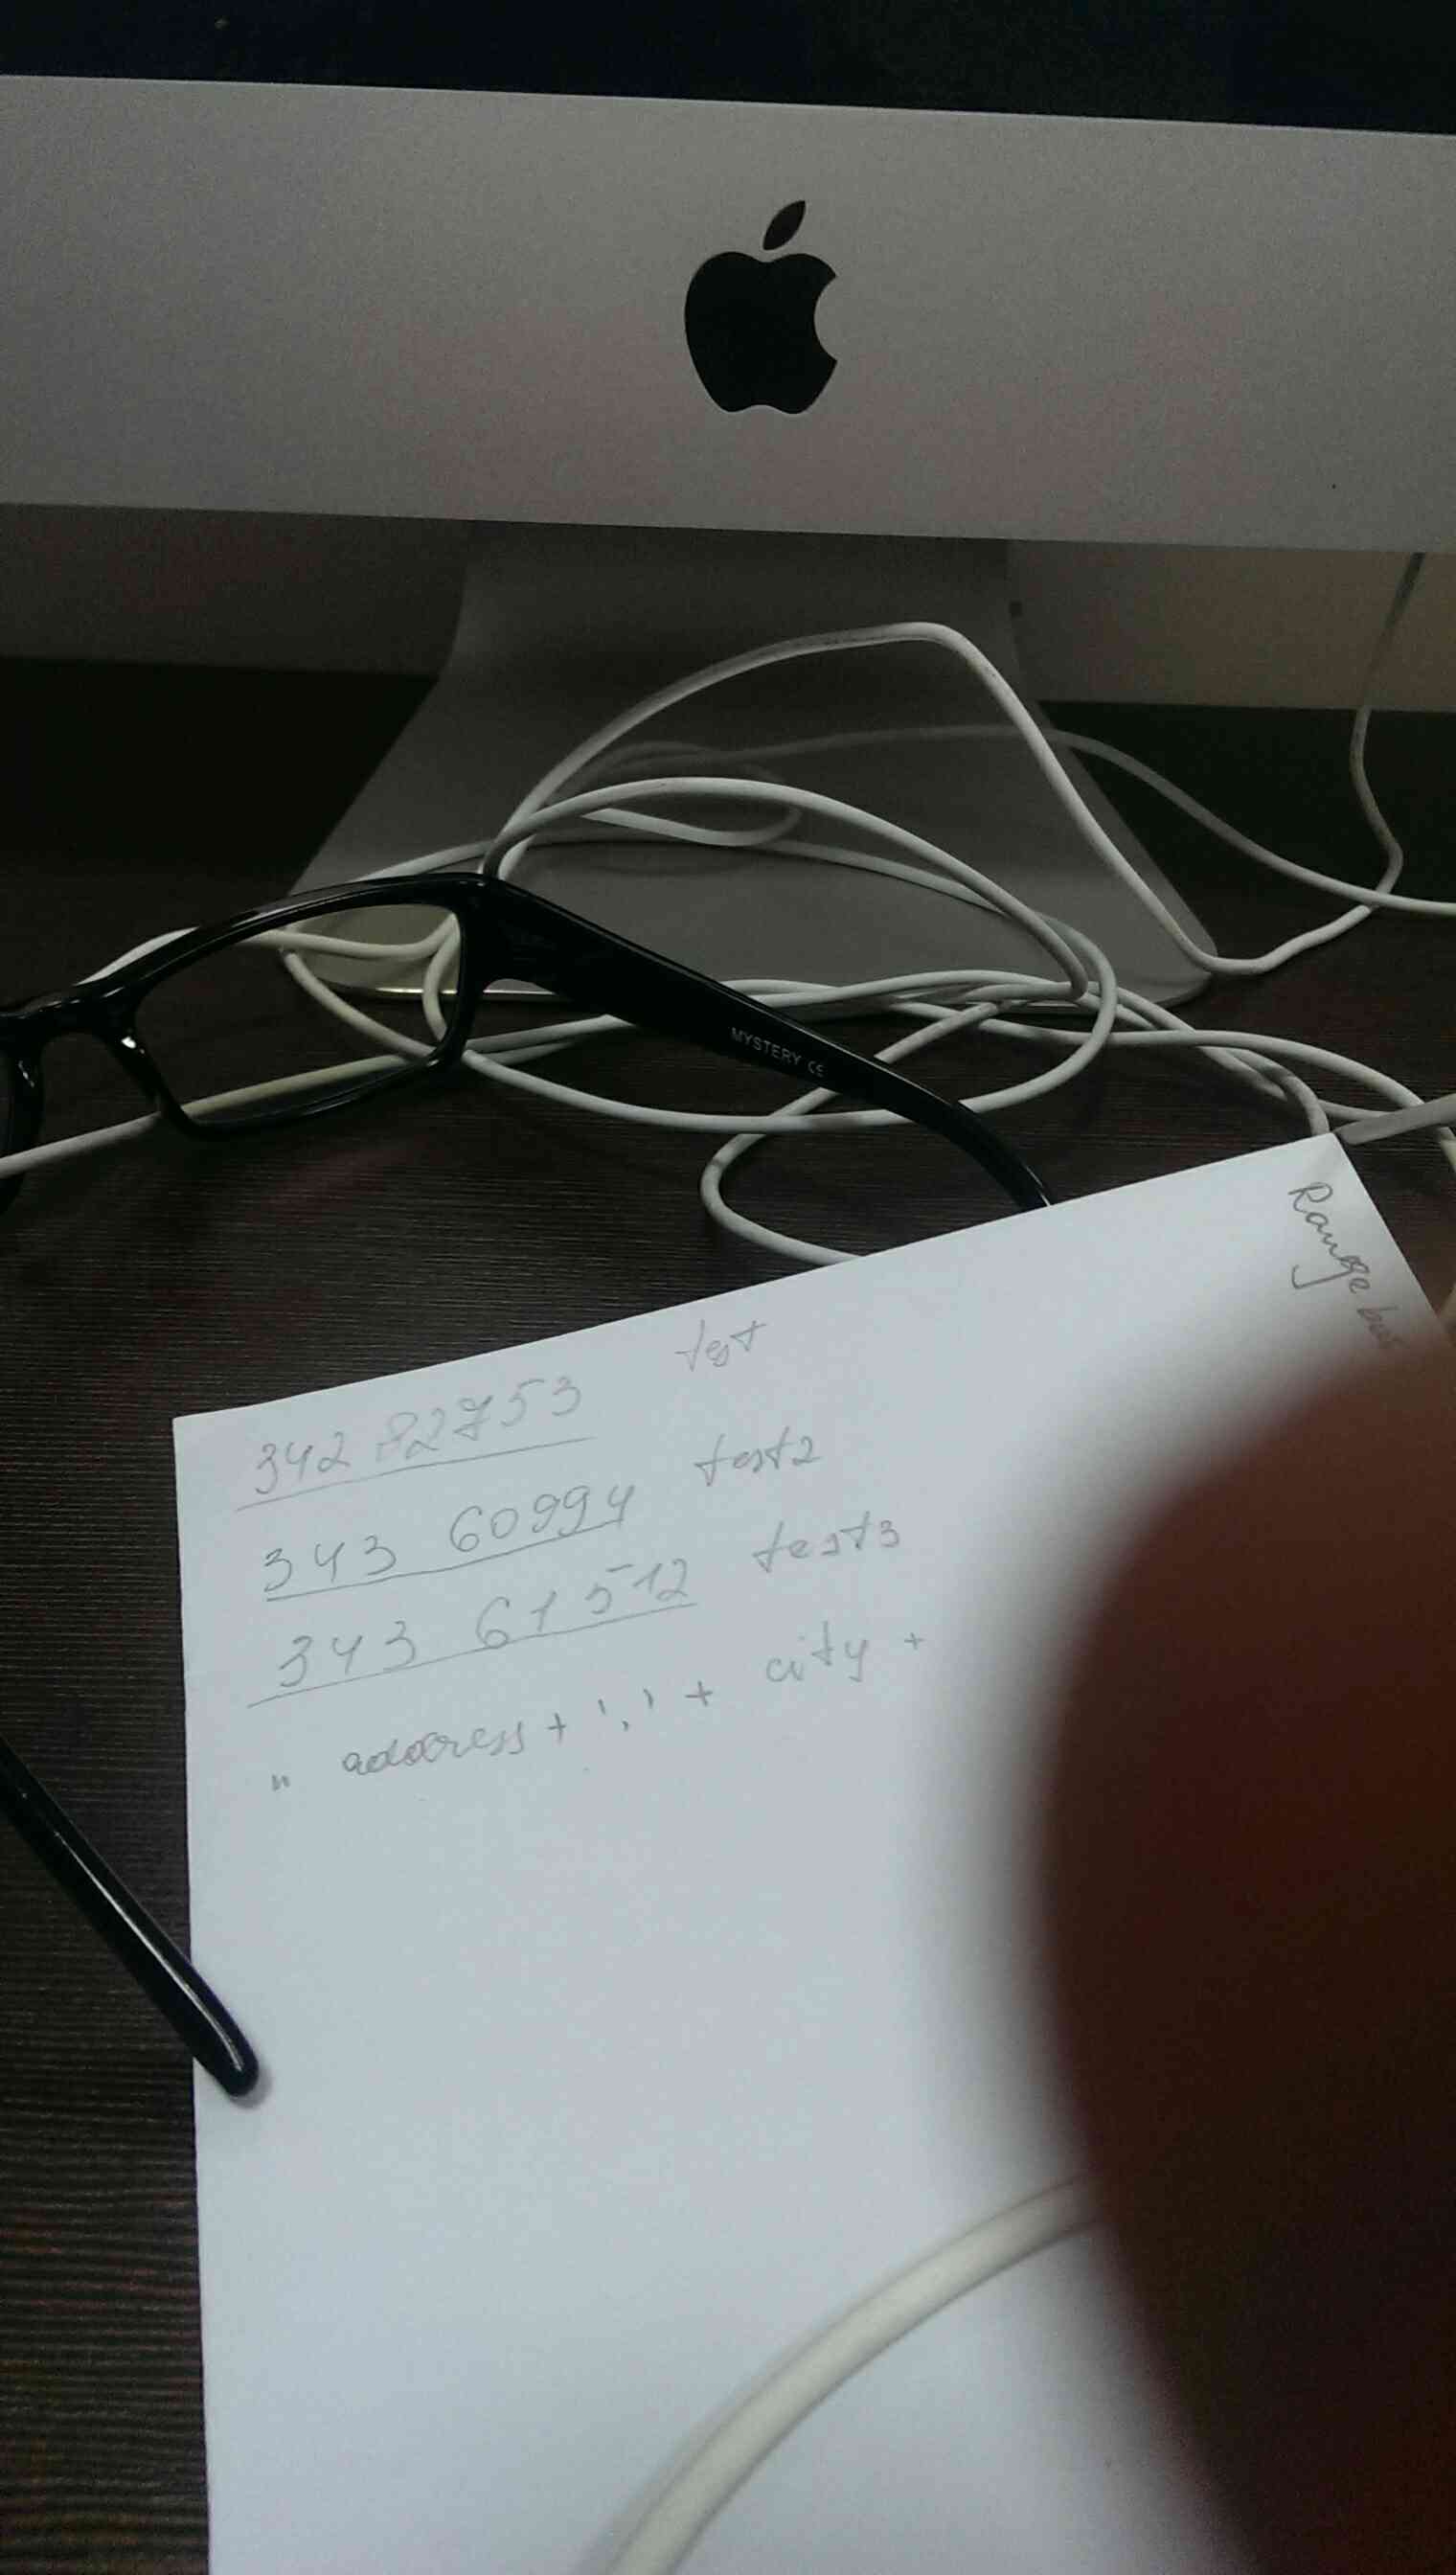 MYSTERY CE
Range
342 82753 test
343 60994 test2
343 61512 test3
" address + ',' + city +